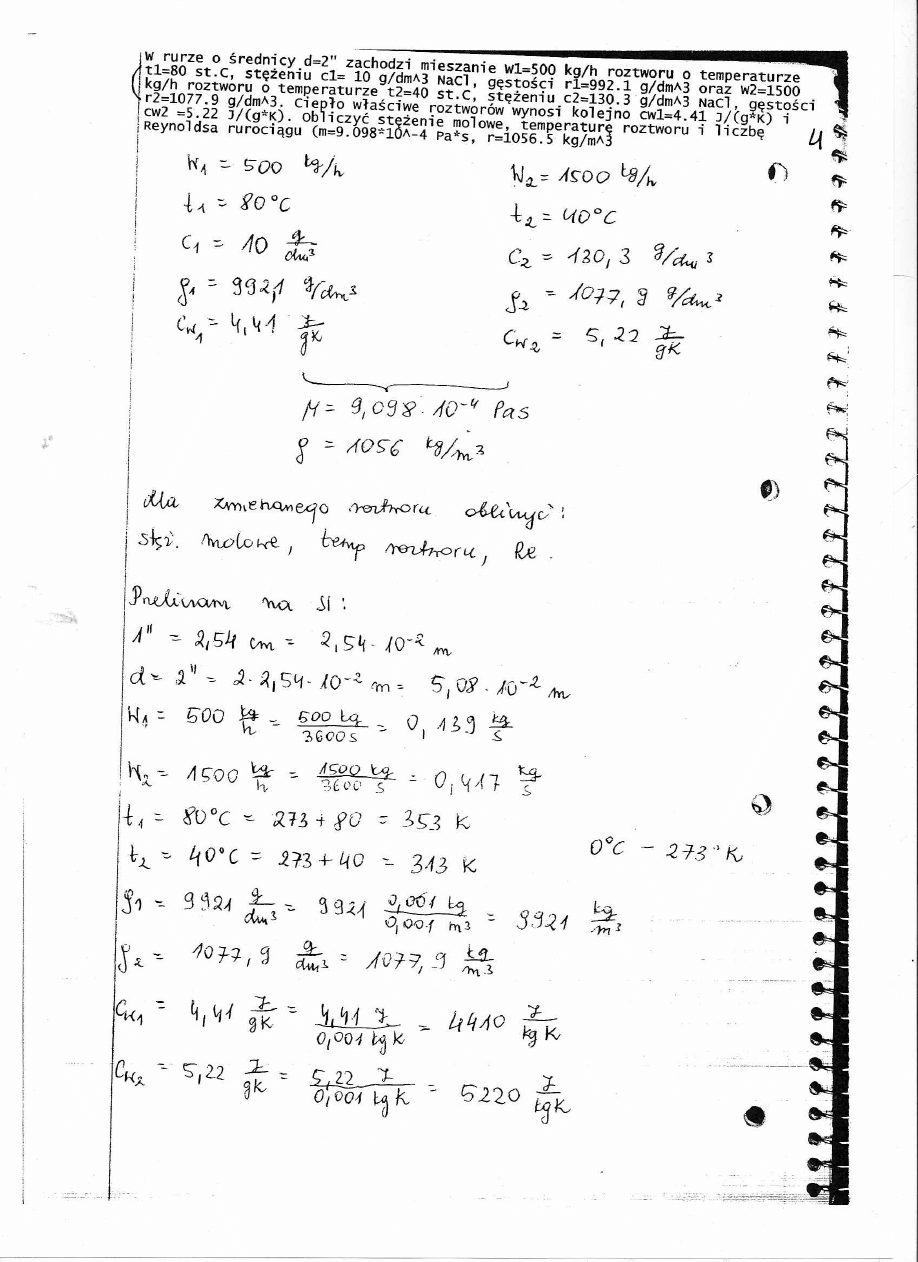 W rurze o średnicy d=2" zachodzi mieszanie W1=500 kg/h roztworu o temperaturze
t1=80 st.C, stężeniu c1= 10 g/dm^3 NaCl, gęstości r1=992.1 g/dm^3 oraz w2=1500
kg/h roztworu o temperaturze t2=40 st.C, stężeniu c2=130.3 g/dm^3 NaCl, gęstości
r2=1077.9 g/dm^3. Ciepło właściwe roztworów wynosi kolejno cw1=4.41 J/(g*K) i
cw2 =5.22 J/(g*K). Obliczyć stężenie molowe, temperaturę roztworu i liczbę
Reynoldsa rurociągu (m=9.098*10^-4 Pa*s, r=1056.5 kg/m^3
4
W₁ = 500 kg/h W₂ = 1500 kg/h
t₁ = 80°C t₂ = 40°C
C₁ = 10 g/dm³ C₂ = 130,3 g/dm³
ρ₁ = 992,1 g/dm³ ρ₂ = 1077,9 g/dm³
Cw₁ = 4,41 J/gK Cw₂ = 5,22 J/gK
μ = 9,098·10⁻⁴ Pas
ρ = 1056 kg/m³
dla zmieszanego roztworu obliczyć:
stęż. molowe, temp roztworu, Re.
Przeliczam na SI:
1" = 2,54 cm = 2,54·10⁻² m
d = 2" = 2·2,54·10⁻² m = 5,08·10⁻² m
W₁ = 500 kg/h = 500 kg/3600 s = 0,139 kg/s
W₂ = 1500 kg/h = 1500 kg/3600 s = 0,417 kg/s
t₁ = 80°C = 273 + 80 = 353 K
t₂ = 40°C = 273 + 40 = 313 K 0°C – 273°K
ρ₁ = 9921 g/dm³ = 9921 0,001 kg/0,001 m³ = 9921 kg/m³
ρ₂ = 1077,9 g/dm³ = 1077,9 kg/m³
Cw₁ = 4,41 J/gK = 4,41 J/0,001 kg K = 4410 J/kg K
Cw₂ = 5,22 J/gK = 5,22 J/0,001 kg K = 5220 J/kgK